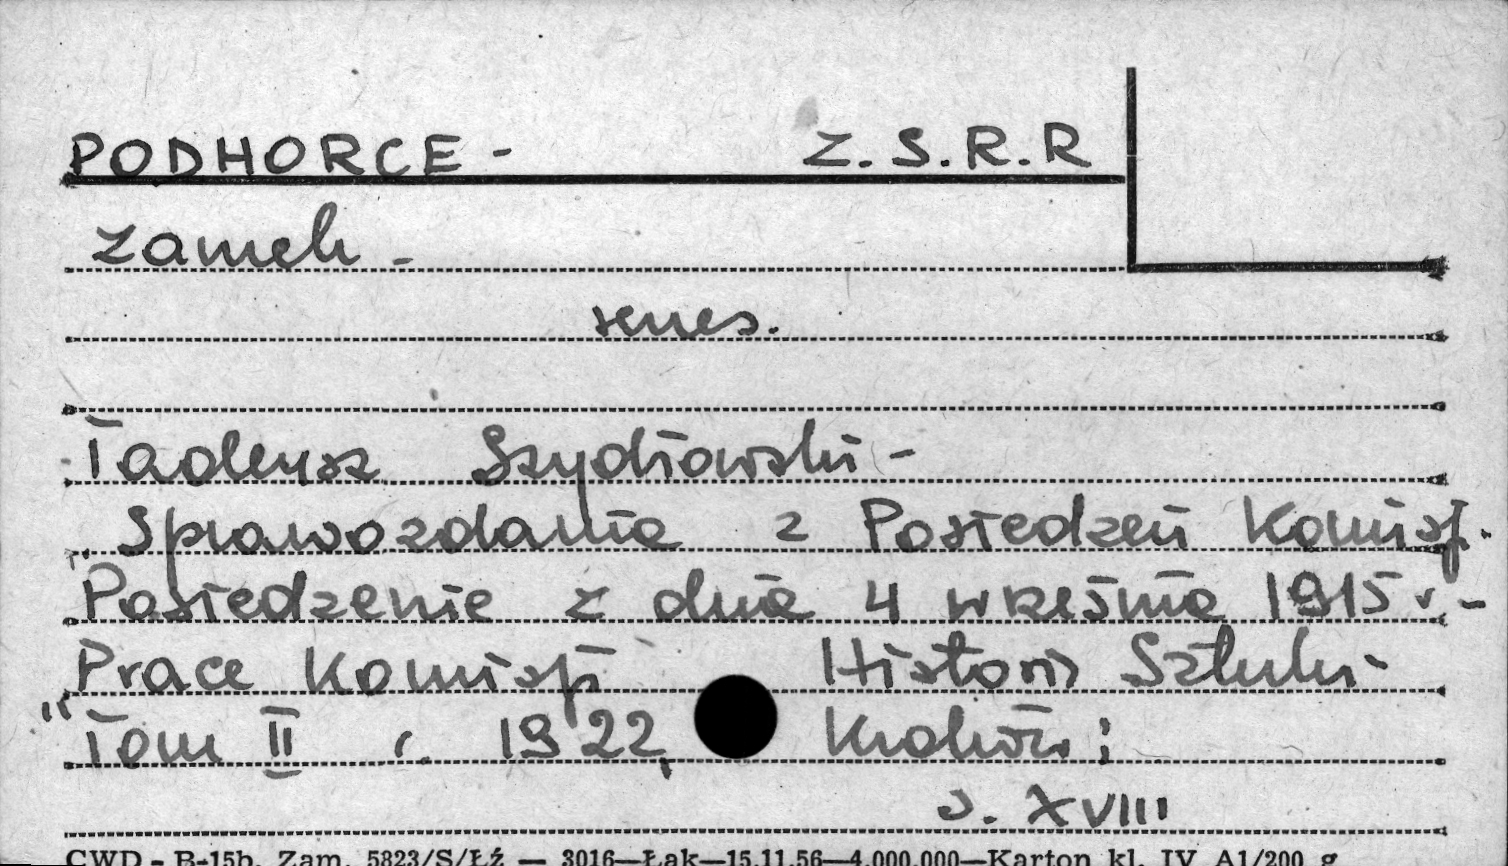 PODHORCE - Z.S.R.R
zamek -
renes.
Tadeusz Szydłowski -
Sprawozdania z Posiedzeń Komisji.
Posiedzenie z dnia 4 września 1915 r. -
Prace Komisji Historii Sztuki -
"Tom II r. 1922, Kraków;
s. XVIII
CWD - B-15b. Zam. 5823/S/ŁŹ — 3016—Łąk—15.11.56—4.000.000—Karton kl. IV A1/200 g